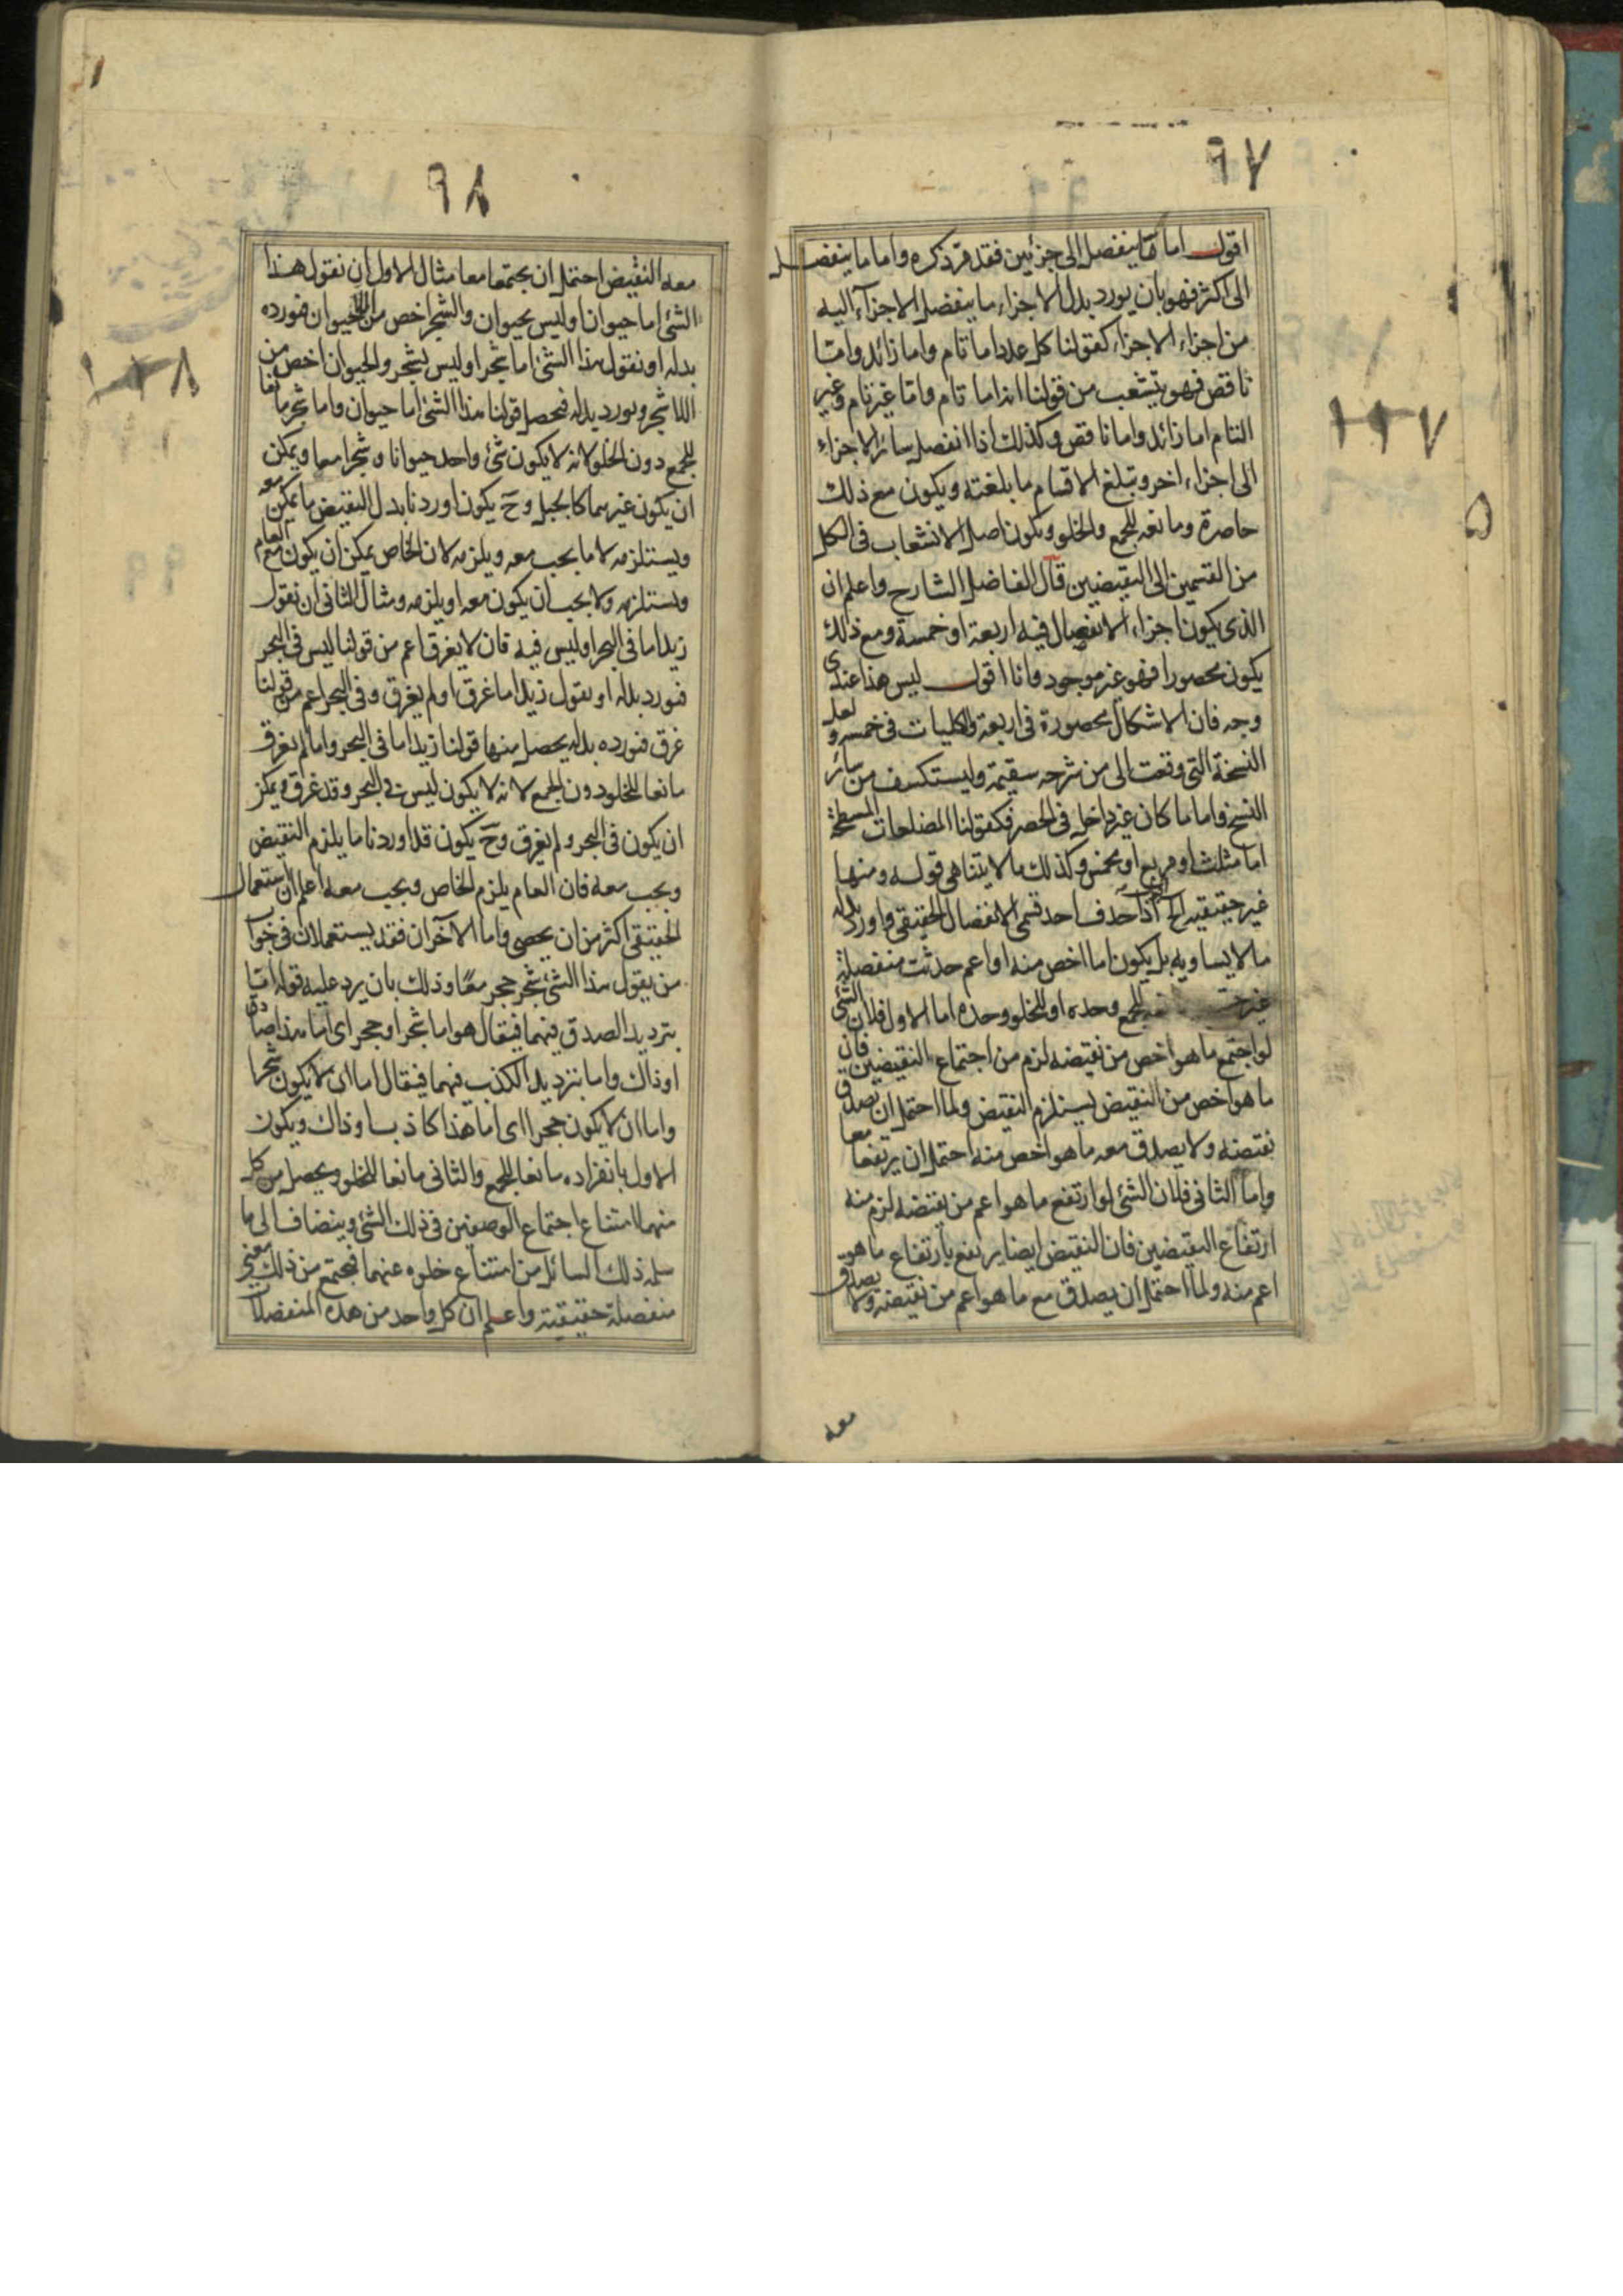 ٩٧
اقول اما ما ينفصل الى جزئين فقد مر ذكره واما ما ينفصل
الى اكثر فهو بان يورد بدل الاجزاء ما ينفصل الاجزآء اليه
من اجزاء الاجزاء كقولنا كل عدد اما تام واما زائد واما
ناقص فهو يتشعب من قولنا انه اما تام واما غير تام وغير
التام اما زائد واما ناقص وكذلك اذا انفصل سائر الاجزاء
الى اجزاء اخر وتبلغ الاقسام ما بلغته ويكون مع ذلك
حاصرة ومانعه للجمع والخلو ويكون اصل الانشعاب فى الكل
من القسمين الى النقيضين قال الفاضل الشارح واعلم ان
الذى يكون اجزاء الانفصال فيه اربعة او خمسة ومع ذلك
يكون محصورا فهو غير موجود وانا اقول ليس هذا عندى
وجه فان الاشكال محصورة فى اربعة والكليات فى خمسه ولعل
النسخة التى وقعت الى من شرحه سقيمة وليستكشف من سائر
النسخ واما ما كان غير داخل فى الحصر فكقولنا المضلعات المسطحة
اما مثلث او مربع او مخمس وكذلك ما لا يتناهى قوله ومنها
غير حقيقيه الخ اذا حذف احد قسمى الانفصال الحقيقى واورد بدله
ما لا يساويه بل يكون اما اخص منه او اعم حدثت منفصلة
غير للجمع وحده او للخلو وحده اما الاول فلان الشئ
لو اجتمع ما هو اخص من نقيضه لزم من اجتماع النقيضين فان
ما هو اخص من النقيض يستلزم النقيض ولما احتمل ان يصدق
نقيضه ولا يصدق معه ما هو اخص منه احتمل ان يرتفعا معا
واما الثانى فلان الشئ لو ارتفع ما هو اعم من نقيضه لزم منه
ارتفاع النقيضين فان النقيض ايضا يرتفع بارتفاع ما هو
اعم منه ولما احتمل ان يصدق مع ما هو اعم من نقيضه ولا يصدق
معه
١١٧
٩٨
معه النقيض احتمل ان يجتمعا معا مثال الاول ان نقول هذا
الشئ اما حيوان او ليس بحيوان والشجر اخص من اللاحيوان فنورده
بدله او نقول هذا الشئ اما شجر او ليس بشجر والحيوان اخص من
اللاشجر ونورد بدله فحصل قولنا هذا الشئ اما حيوان واما شجر مانعا
للجمع دون الخلو لانه لا يكون شئ واحد حيوانا وشجرا معا ويمكن
ان يكون غيرهما كالجبل وح يكون اوردنا بدل النقيض ما يمكن معه
ويستلزمه لا ما يجب معه ويلزمه لان الخاص يمكن ان يكون مع العام
ويستلزمه ولا يجب ان يكون معه او يلزمه ومثال الثانى ان نقول
زيد اما فى البحر او ليس فيه فان لا يغرق اعم من قولنا ليس فى البحر
فنورد بدله او نقول زيد اما غرق او لم يغرق وفى البحر اعم من قولنا
غرق فنورده بدله يحصل منها قولنا زيد اما فى البحر واما لم يغرق
مانعا للخلو دون الجمع لانه لا يكون ليس فى البحر وقد غرق ويمكن
ان يكون فى البحر ولم يغرق وح يكون قد اوردنا ما يلزم النقيض
ويجب معه فان العام يلزم الخاص ويجب معه اعلم ان استعمال
الحقيقى اكثر من ان يحصى واما الآخران فقد يستعملان فى جواب
من يقول هذا الشئ شجر حجر معًا وذلك بان يرد عليه قوله اما
بترديد الصدق فيهما فيقال هو اما شجر او حجر اى اما هذا صادق
او ذاك واما بترديد الكذب فيهما فيقال اما ان لا يكون شجرا
واما ان لا يكون حجرا اى اما هذا كاذب او ذاك ويكون
الاول بانفراده مانعا للجمع والثانى مانعا للخلو ويحصل من كل
منهما امتناع اجتماع الوصفين فى ذلك الشئ وينضاف الى ما
سلمه ذلك السائل من امتناع خلوه عنهما فيجتمع من ذلك معنى
منفصلة حقيقية واعلم ان كل واحد من هذه المنفصلات
١١٨